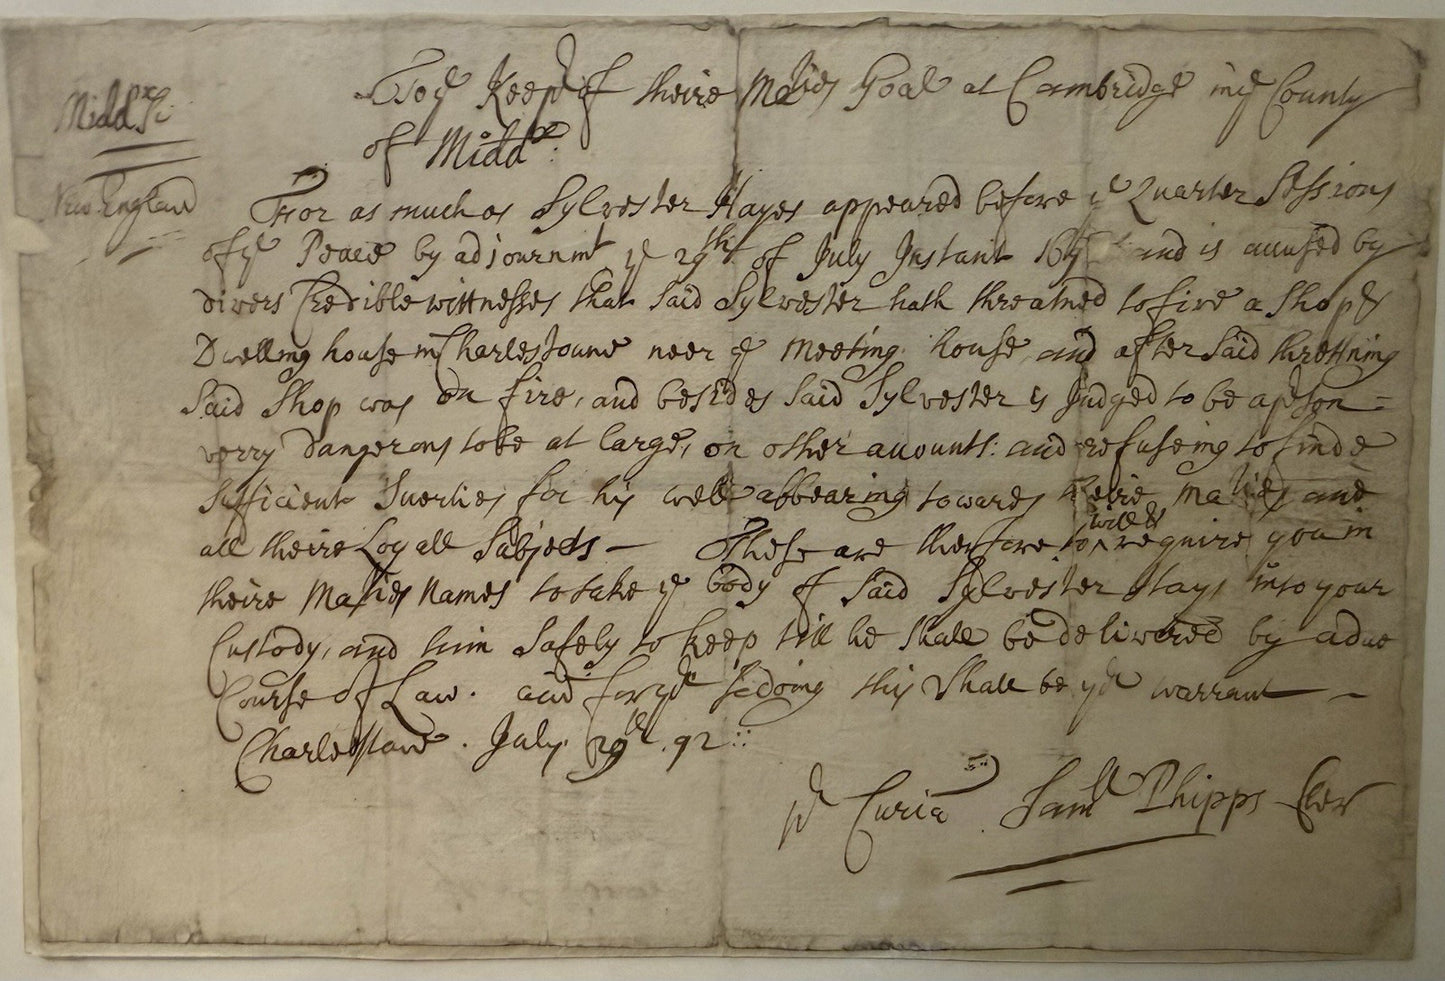 Midd^x Sc:
New: England
To y^e Keep^r of theire Ma^ties Goal at Cambridge in y^e County
of Midd^x:
For as much as Sylvester Hayes appeared before y^e Quarter Sessions
of y^e Peace by adjournm^t y^e 29^th of July Instant 169 and is accused by
divers Credible wittnesses that said Sylvester hath threatned to fire a shop &
Dwelling house in Charlestowne neer y^e Meeting house, and after said threttning
said shop was on fire, and besides said Sylvester is Judged to be a pson =
verry dangerous to be at large, on other accounts: and refuseing to finde
sufficient suerties for his well abbearing towards theire Ma^ties and
all theire Loyall Subjects — These are therfore to ^ will & require you in
theire Ma^ties names to take y^e body of said Sylvester Hays into your
Custody, and him safely to keep till he shall be delivered by a due
Course of Law. and for yo^r so doing this shall be yo^r warrant —
Charlestowne. July. 29^th. 92 ::
p^r Curia^m. Sam^ll Phipps Cler